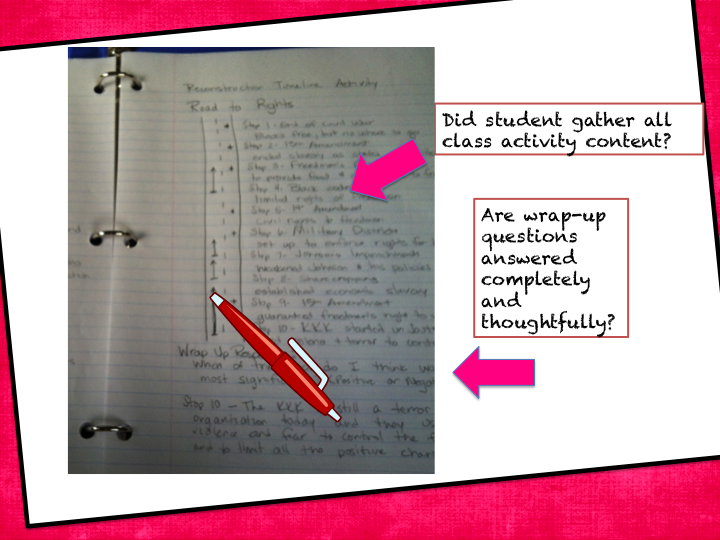 Reconstruction Timeline Activity
Road to Rights
Stop 1 - End of Civil War
Blacks free, but no where to go
Stop 2 - 13th Amendment
ended slavery as
Stop 3 - Freedmen's
to provide food +
Stop 4 - Black codes
limited rights of
Stop 5 - 14th Amendment
Civil rights to freedmen
Stop 6 - Military Districts
set up to enforce rights for
Stop 7 - Johnson's Impeachment
weakened Johnson + his policies
Stop 8 - Sharecropping
established economic slavery
Stop 9 - 15th Amendment
guaranteed freedmen's right to
Stop 10 - KKK started
+ terror to
Wrap Up
Which of do I think
most (Positive or
Stop 10 - The KKK still a terror
organization today and they
violence and fear to control the
and to limit all the positive
Did student gather all
class activity content?
Are wrap-up
questions
answered
completely
and
thoughtfully?